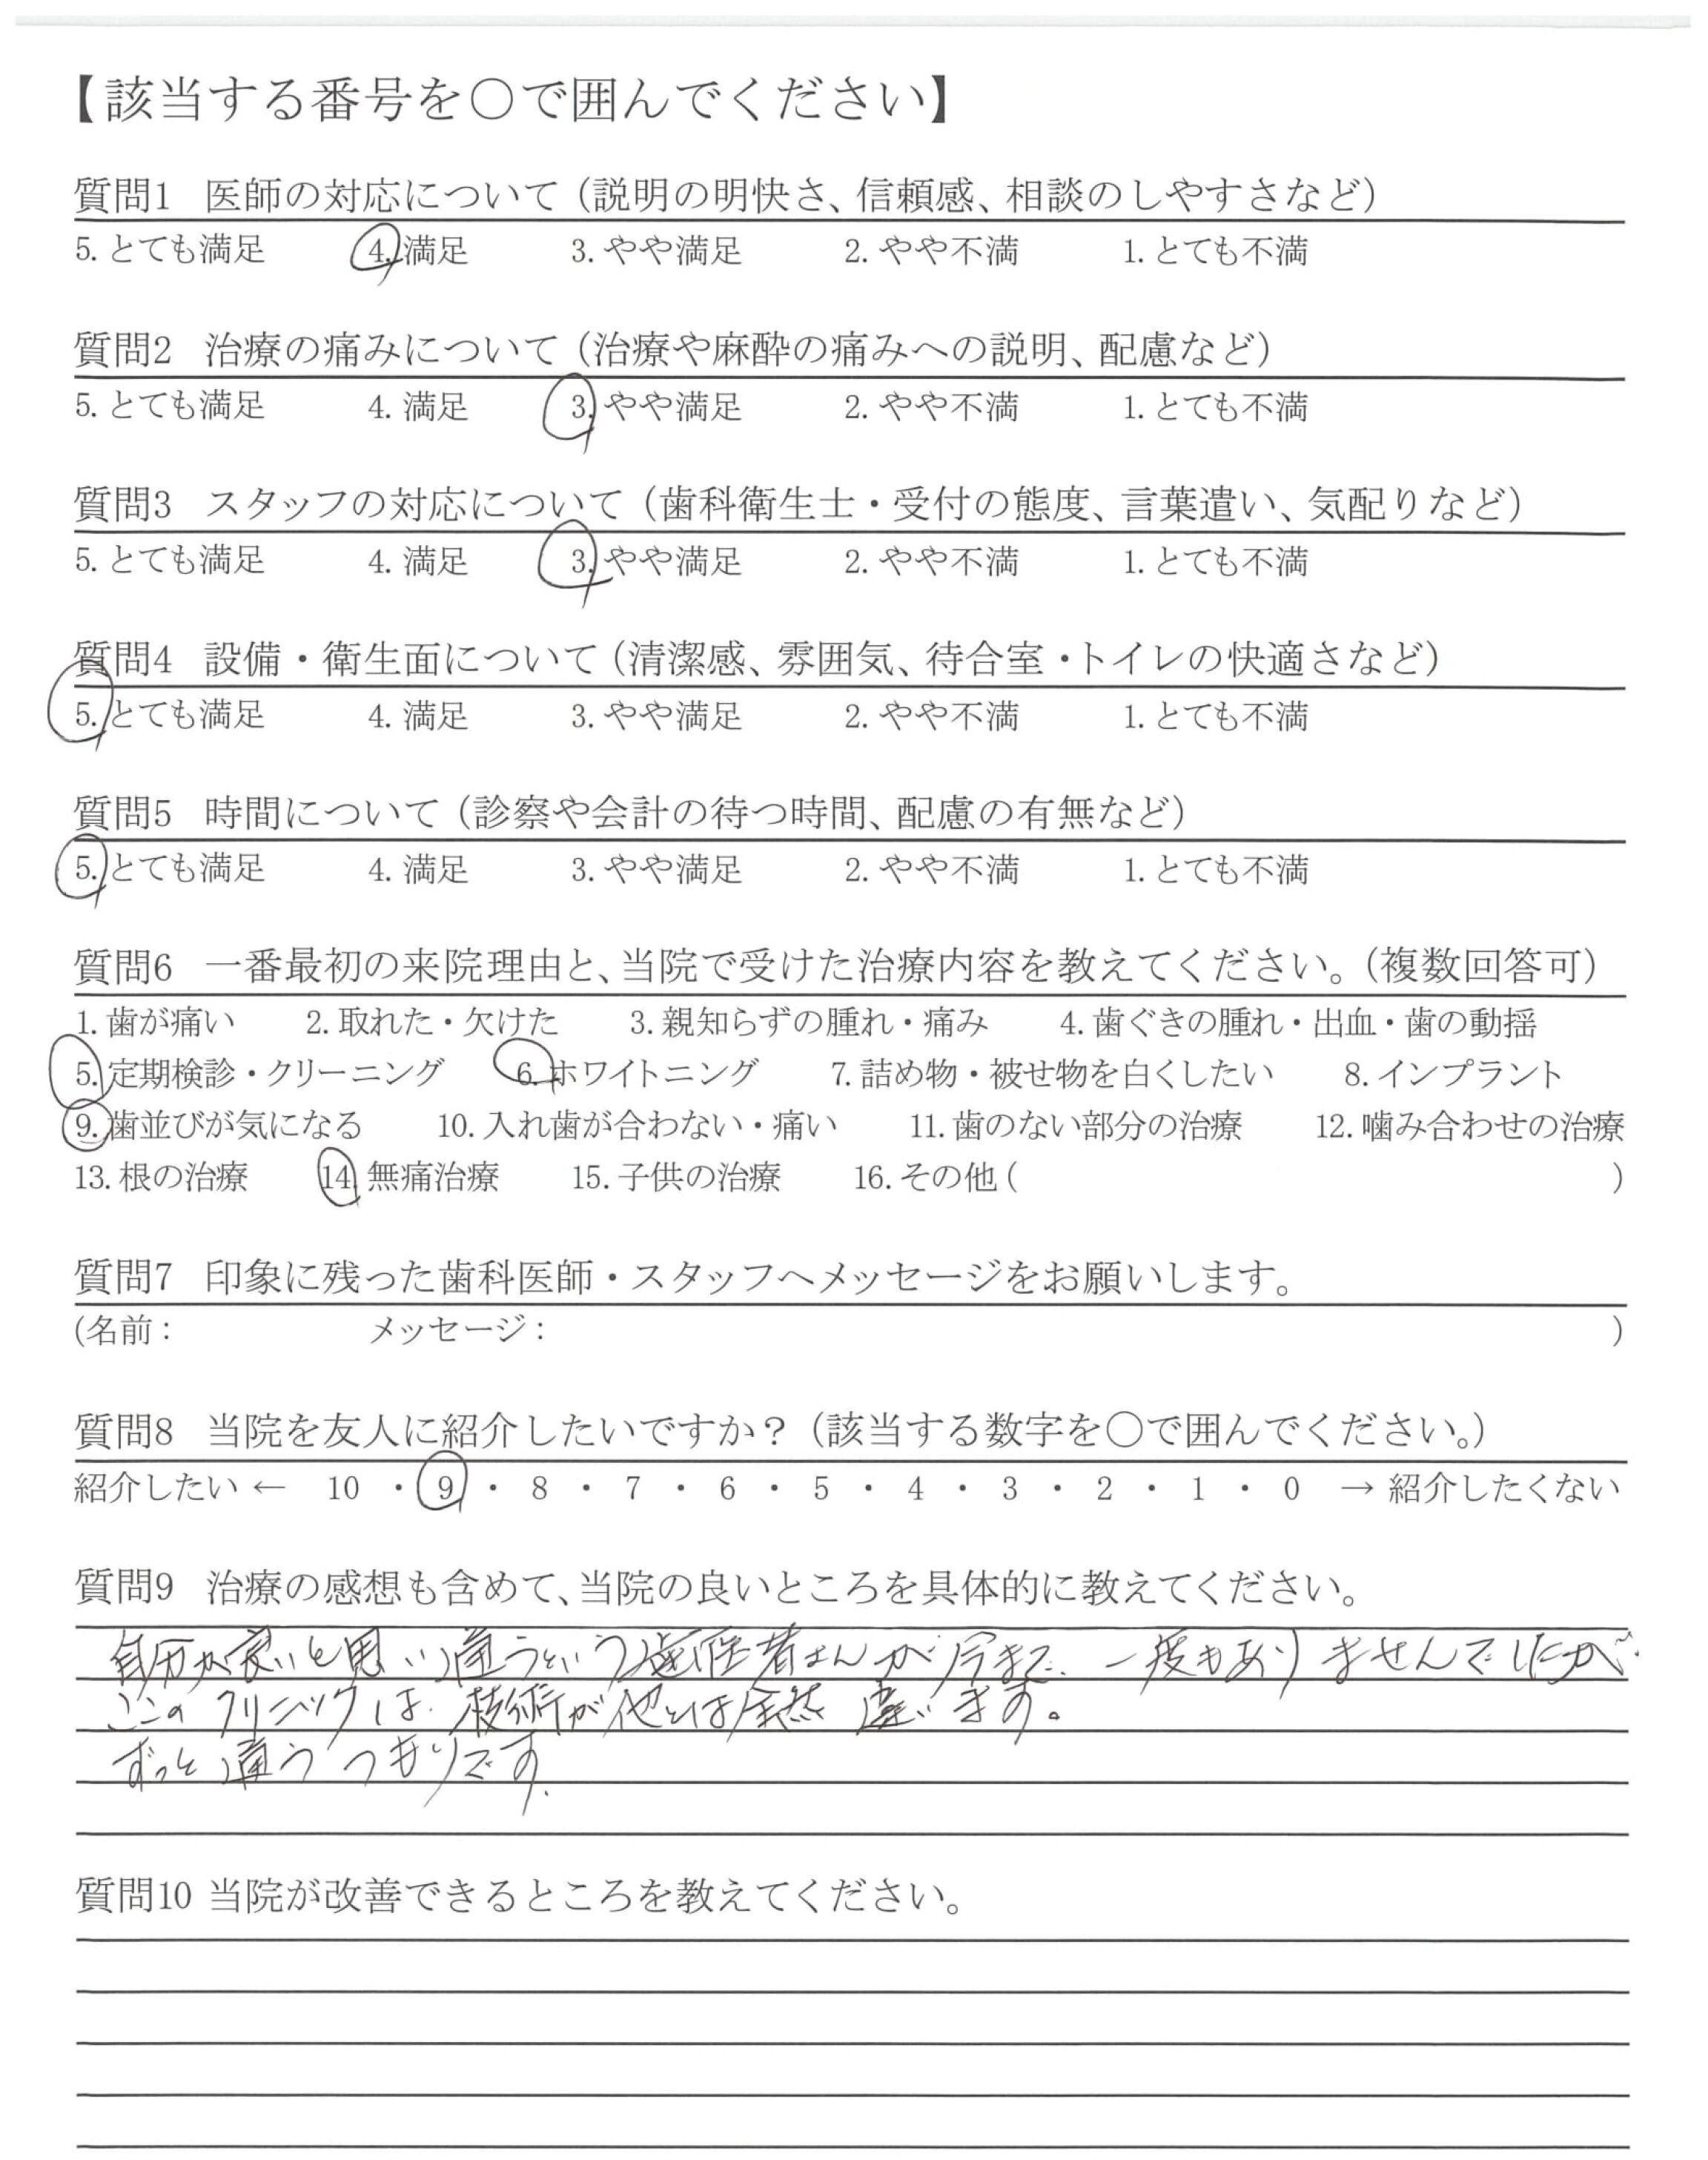 【該当する番号を〇で囲んでください】
質問1 医師の対応について（説明の明快さ、信頼感、相談のしやすさなど）
5. とても満足 4. 満足 3. やや満足 2. やや不満 1. とても不満
質問2 治療の痛みについて（治療や麻酔の痛みへの説明、配慮など）
5. とても満足 4. 満足 3. やや満足 2. やや不満 1. とても不満
質問3 スタッフの対応について（歯科衛生士・受付の態度、言葉遣い、気配りなど）
5. とても満足 4. 満足 3. やや満足 2. やや不満 1. とても不満
質問4 設備・衛生面について（清潔感、雰囲気、待合室・トイレの快適さなど）
5. とても満足 4. 満足 3. やや満足 2. やや不満 1. とても不満
質問5 時間について（診察や会計の待つ時間、配慮の有無など）
5. とても満足 4. 満足 3. やや満足 2. やや不満 1. とても不満
質問6 一番最初の来院理由と、当院で受けた治療内容を教えてください。（複数回答可）
1. 歯が痛い 2. 取れた・欠けた 3. 親知らずの腫れ・痛み 4. 歯ぐきの腫れ・出血・歯の動揺
5. 定期検診・クリーニング 6. ホワイトニング 7. 詰め物・被せ物を白くしたい 8. インプラント
9. 歯並びが気になる 10. 入れ歯が合わない・痛い 11. 歯のない部分の治療 12. 噛み合わせの治療
13. 根の治療 14. 無痛治療 15. 子供の治療 16. その他 ( )
質問7 印象に残った歯科医師・スタッフへメッセージをお願いします。
(名前： メッセージ： )
質問8 当院を友人に紹介したいですか？（該当する数字を〇で囲んでください。）
紹介したい ← 10 ・ 9 ・ 8 ・ 7 ・ 6 ・ 5 ・ 4 ・ 3 ・ 2 ・ 1 ・ 0 → 紹介したくない
質問9 治療の感想も含めて、当院の良いところを具体的に教えてください。
自分が良いと思い通うという歯医者さんが今まで、一度もありませんでしたが
ここのクリニックは、技術が他とは全然違います。
ずっと通うつもりです.
質問10 当院が改善できるところを教えてください。